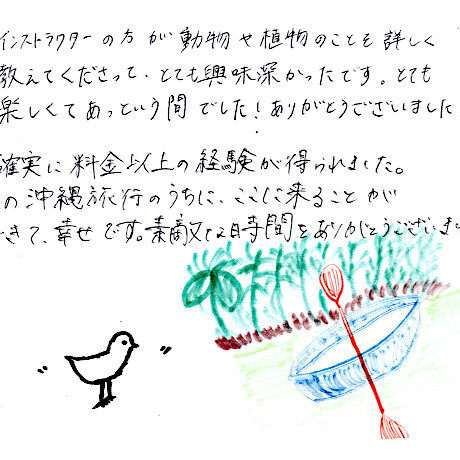 インストラクターの方が動物や植物のことを詳しく
教えてくださって、とても興味深かったです。とても
楽しくてあっという間でした！ありがとうございました
確実に料金以上の経験が得られました。
の沖縄旅行のうちに、ここに来ることが
きて、幸せです。素敵な時間をありがとうございまし